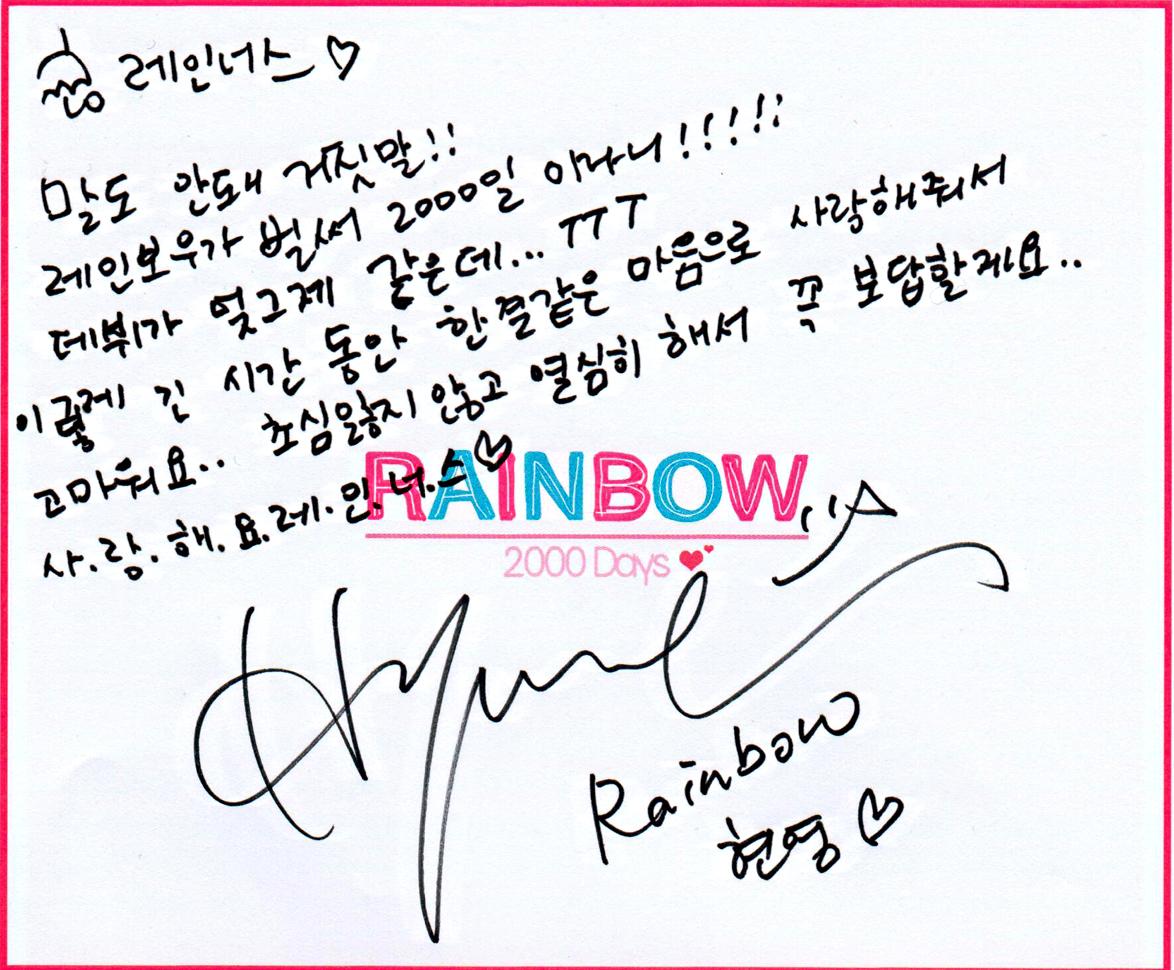 To. 레인너스 ♡
말도 안돼 거짓말!!
레인보우가 벌써 2000일 이라니!!!!!
데뷔가 엊그제 같은데... TTT
이렇게 긴 시간 동안 한결같은 마음으로 사랑해줘서
고마워요.. 초심잃지 않고 열심히 해서 꼭 보답할게요..
사.랑.해.요.레.인.너.스♡
RAINBOW
2000 Days
Hyun
Rainbow
현영♡